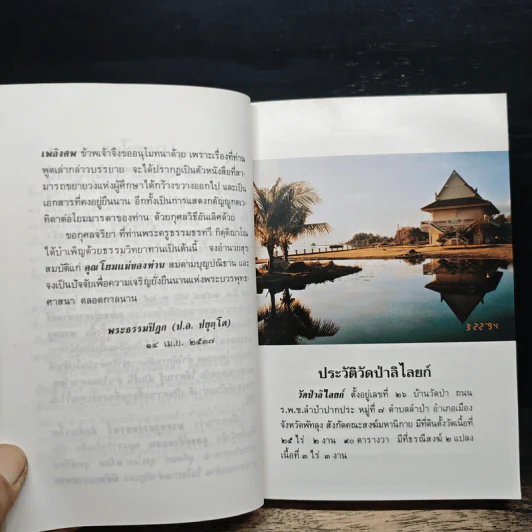 เพลิงศพ ข้าพเจ้าจึงขออนุโมทนาด้วย เพราะเรื่องที่ท่าน
พูดเล่ากล่าวบรรยาย จะได้ปรากฏเป็นตัวหนังสือที่สา-
มารถขยายวงแห่งผู้ศึกษาได้กว้างขวางออกไป และเป็น
เอกสารที่คงอยู่ยืนนาน อีกทั้งเป็นการแสดงกตัญญูกตเว-
ทิตาต่อโยมมารดาของท่าน ด้วยกุศลวิธีอันเลิศด้วย
ขอกุศลจริยา ที่ท่านพระครูธรรมธรทวี กิตฺติญาโณ
ได้บำเพ็ญด้วยธรรมวิทยาทานเป็นต้นนี้ จงอำนวยสุข
สมบัติแก่ คุณโยมแม่ของท่าน สมตามบุญปณิธาน และ
จงเป็นปัจจัยเพื่อความเจริญยั่งยืนนานแห่งพระบวรพุทธ-
ศาสนา ตลอดกาลนาน
พระธรรมปิฎก (ป.อ. ปยุตฺโต)
๑๔ เม.ย. ๒๕๓๗
3·22'94
ประวัติวัดป่าลิไลยก์
วัดป่าลิไลยก์ ตั้งอยู่เลขที่ ๒๖ บ้านวัดป่า ถนน
ร.พ.ช.ลำปำปากประ หมู่ที่ ๗ ตำบลลำปำ อำเภอเมือง
จังหวัดพัทลุง สังกัดคณะสงฆ์มหานิกาย มีที่ดินตั้งวัดเนื้อที่
๒๕ ไร่ ๒ งาน ๙๐ ตารางวา มีที่ธรณีสงฆ์ ๒ แปลง
เนื้อที่ ๓ ไร่ ๓ งาน